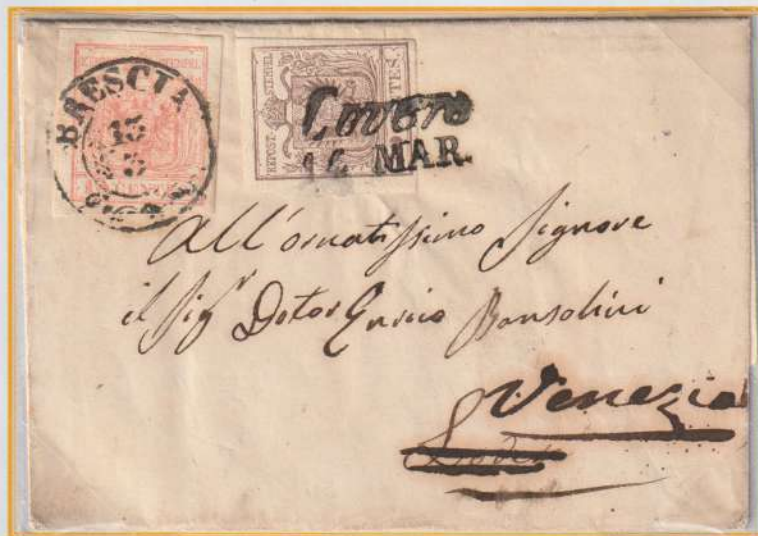 BRESCIA
13
Lovere
14 MAR.
REPOST-STEMPEL
All'ornatissimo Signore
il Sigr Dotor Enrico Bonsolini
Venezia
Lodi